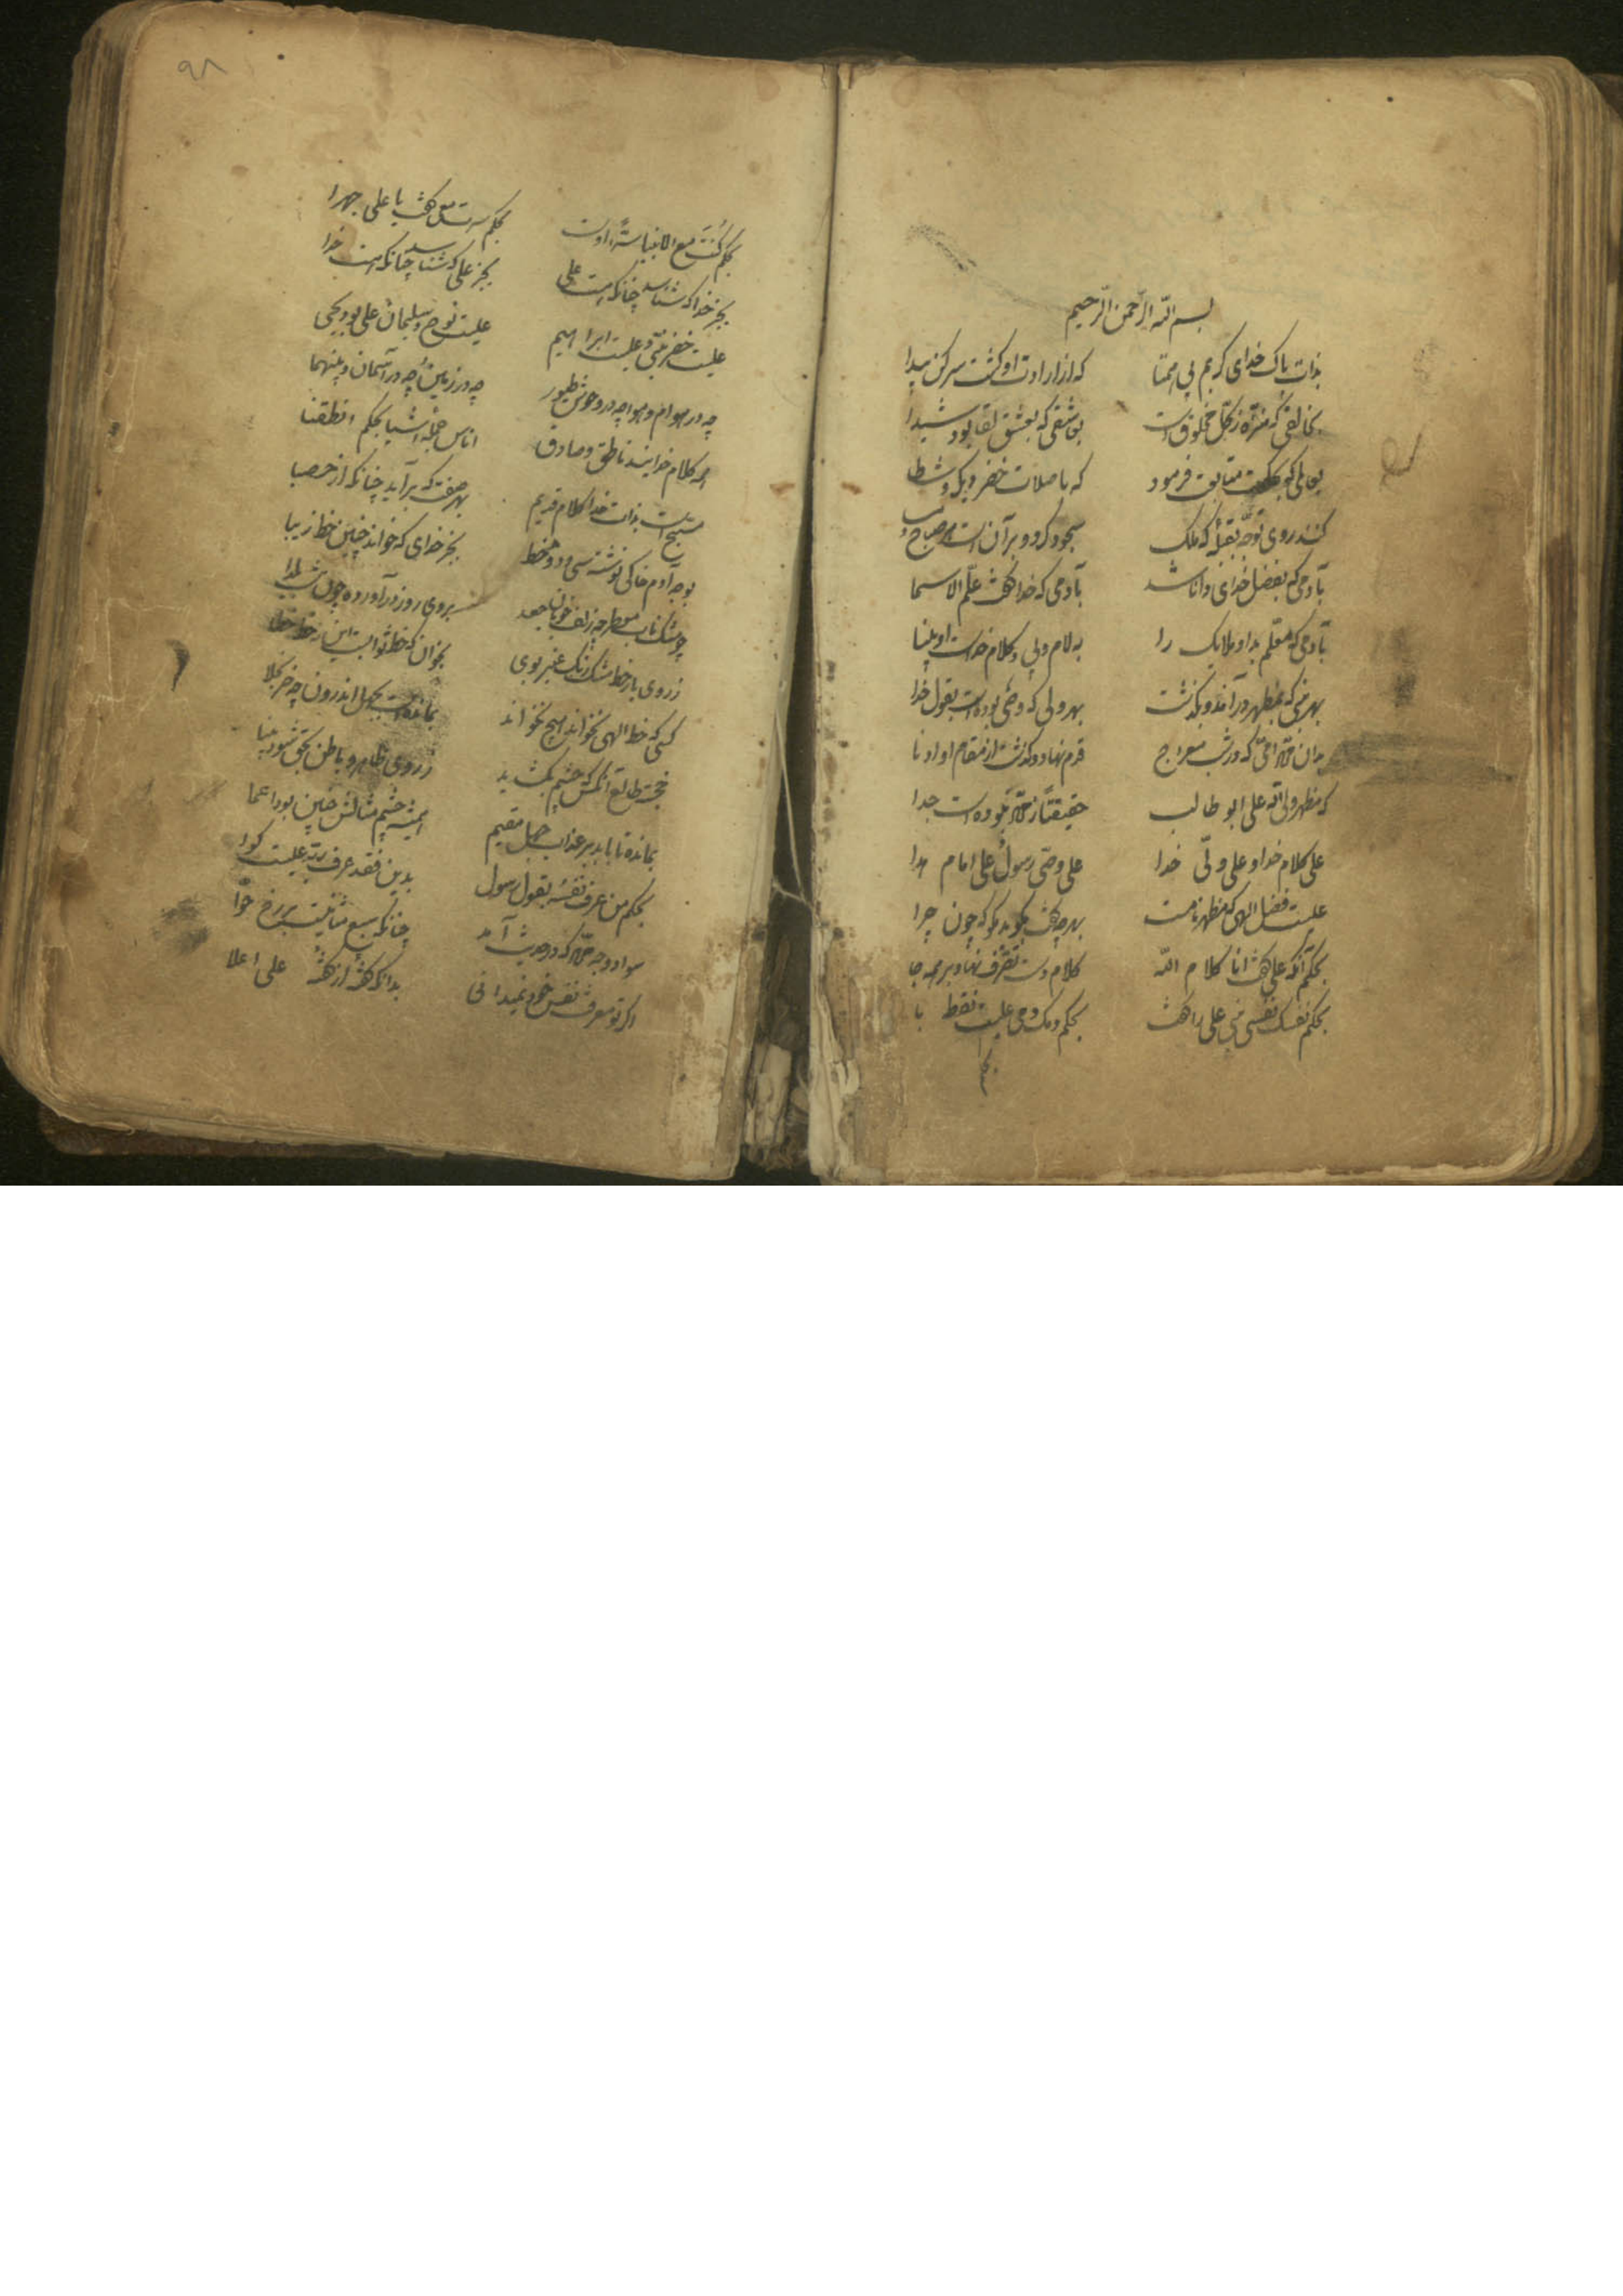 ۹۸
بسم الله الرحمن الرحیم
بذات پاک خدای کریم بی همتا که از ارادت او کشت سر کن پیدا
بخالقی که منزّه ز کلّ مخلوق است بعاشقی که بعشق لقا بود شیدا
بعاملی که متابعت فرمود که با صلات خضر
کنند روی توجّه بقبلهٔ که ملک سجود کرد و بر آن است هر صباح و
بآدمی که بفضل خدای دانا شد بآدمی که خدا کفت علّم الاسما
بآدمی که معلّم بد او ملایک را به لام و بی و کلام خداست او بینا
بهر نبی که بمظهر در آمد و بکذشت بهر ولی که وصی بوده است بقول خدا
بدان که در شب معراج قدم نهاد و کذشت از مقام او ادنا
که مظهر ولی الله علی ابو طالب حقیقتا ز نبوده است جدا
علی کلام خدا و علی ولّی خدا علی وصّی رسول و علی امام هدا
علیست فضل الهی که مظهر نامست بهر چه کفت بکوید مکو که چون و چرا
بحکم آنکه علی کفت انا کلام الله کلام دست تصّرف نهاد بر همه جا
بحکم نفسک نفسی نبی علی را کفت بحکم دمک دمی علیست نقطه با
بحکم کُنتَ مع الانبیا سرّا اوست بحکم سرت معی کفت با علی جهرا
بجز خدا که شناسد چنانکه هست علی بجز علی که شناسد چنانکه هست خدا
علیست خضر نبّی و علیست ابراهیم علیست نوح و سلیمان علی بود یحیی
چه در هوام و هوا چه در وحوش و طیور چه در زمین و چه در آسمان و بینهما
همه کلام خدایند ناطق و صادق اناس جمله اشیا بحکم انطقنا
مسبّح است بذات خدا کلام قدیم بهر صفت که برآید چنانکه از حصبا
بوجه آدم خاکی نوشته سی و دو خط بجز خدای که خواند چنین خط زیبا
چو مشک ناب معطر چه زلف خوبان جعد بروی روز در آورده چون شب یلدا
ز روی یار خط مشک رنک عنبر بوی بخوان که خط ثوابست این نه خط خطا
کسی که خط الهی نخواند هیچ نخواند بمانده است بجهل اندرون چه خر بخلا
خجسته طالع آنکس که چشم بکشاید ز روی ظاهر و باطن بحق شود بینا
بمانده تا بابد بر عذاب جهل مقیم همیشه چشم مثالش چنین بود اعما
بحکم من عرف نفسهُ بقول رسول بدین فقد عرف ربّه علیست کوا
سواد وجه که در حدیث آمد چنانکه سبع مثانیست بر رخ حوّا
اکر تو معرفت نفس خود نمیدانی بدانکه کفته علی اعلا